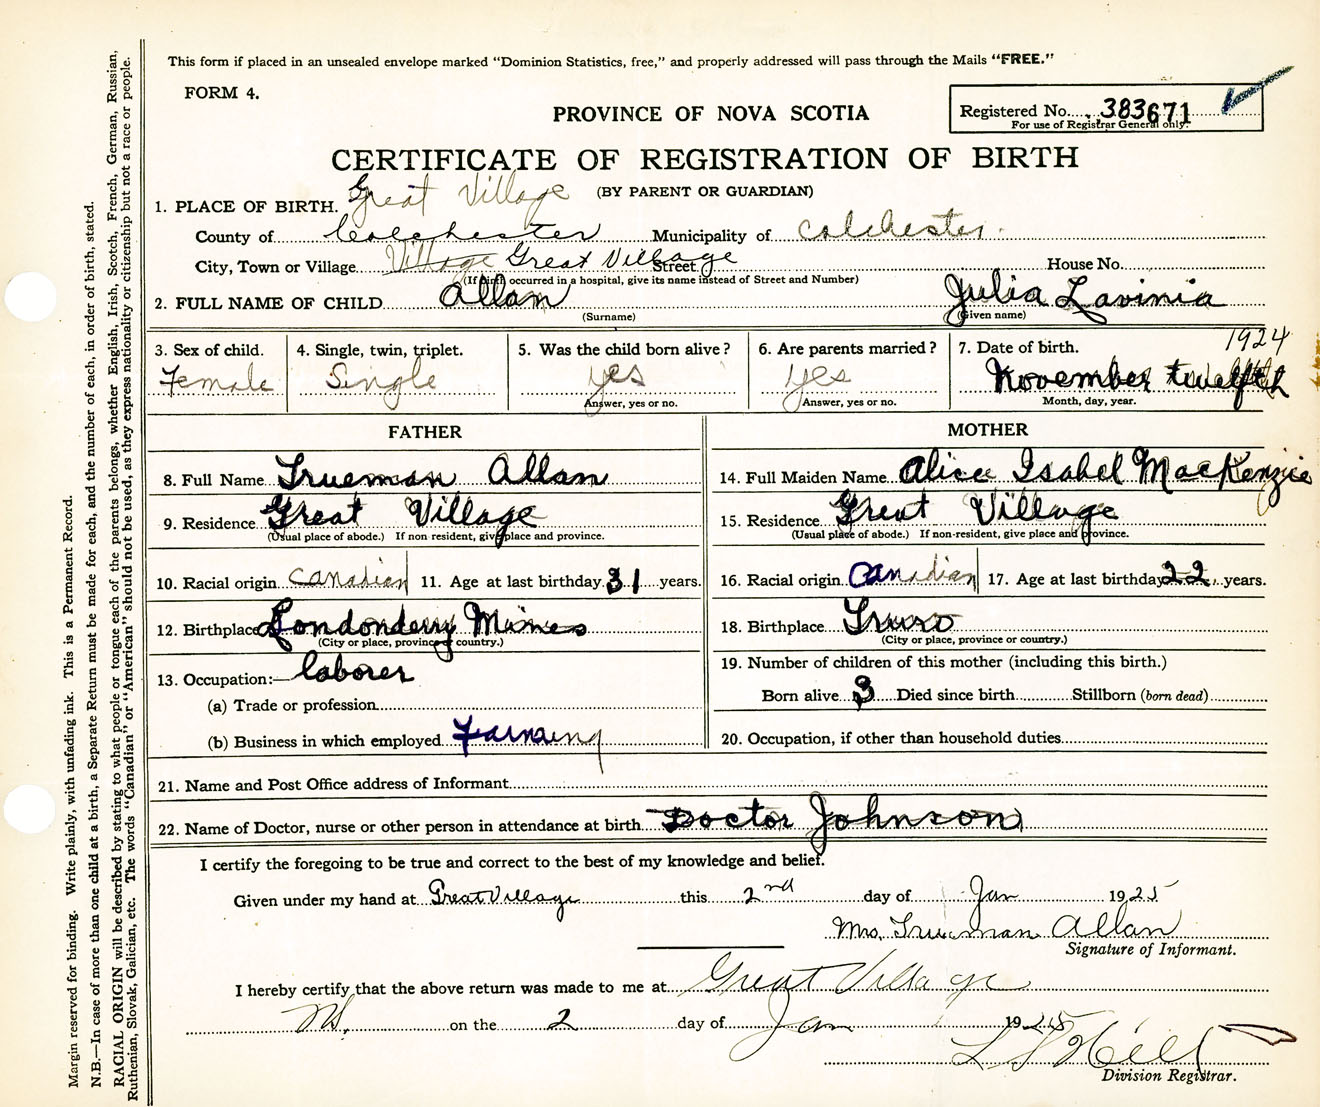 This form if placed in an unsealed envelope marked "Dominion Statistics, free," and properly addressed will pass through the Mails "FREE."
FORM 4.
PROVINCE OF NOVA SCOTIA
Registered No. 383671
For use of Registrar General only.
CERTIFICATE OF REGISTRATION OF BIRTH
(BY PARENT OR GUARDIAN)
1. PLACE OF BIRTH. Great Village
County of Colchester Municipality of Colchester.
City, Town or Village Village Great Village Street House No.
(If birth occurred in a hospital, give its name instead of Street and Number)
2. FULL NAME OF CHILD Allan Julia Lavinia
(Surname) (Given name)
3. Sex of child. 4. Single, twin, triplet. 5. Was the child born alive? 6. Are parents married? 7. Date of birth. 1924
Female Single yes yes November twelfth
Answer, yes or no. Answer, yes or no. Month, day, year.
FATHER
8. Full Name Trueman Allan
9. Residence Great Village
(Usual place of abode.) If non-resident, give place and province.
10. Racial origin Canadian 11. Age at last birthday 31 years.
12. Birthplace Londonderry Mines
(City or place, province or country.)
13. Occupation:— laborer
(a) Trade or profession
(b) Business in which employed Farming
MOTHER
14. Full Maiden Name Alice Isabel MacKenzie
15. Residence Great Village
(Usual place of abode.) If non-resident, give place and province.
16. Racial origin Canadian 17. Age at last birthday 22 years.
18. Birthplace Truro
(City or place, province or country.)
19. Number of children of this mother (including this birth.)
Born alive 3 Died since birth Stillborn (born dead)
20. Occupation, if other than household duties
21. Name and Post Office address of Informant
22. Name of Doctor, nurse or other person in attendance at birth Doctor Johnson
I certify the foregoing to be true and correct to the best of my knowledge and belief.
Given under my hand at Great Village this 2nd day of Jan 1925
Mrs. Trueman Allan
Signature of Informant.
I hereby certify that the above return was made to me at Great Village
NS. on the 2 day of Jan 1925
Hill
Division Registrar.
Margin reserved for binding. Write plainly, with unfading ink. This is a Permanent Record.
N.B.—In case of more than one child at a birth, a Separate Return must be made for each, and the number of each, in order of birth, stated.
RACIAL ORIGIN will be described by stating to what people or tongue each of the parents belongs, whether English, Irish, Scotch, French, German, Russian,
Ruthenian, Slovak, Galician, etc. The words "Canadian" or "American" should not be used, as they express nationality or citizenship but not a race or people.